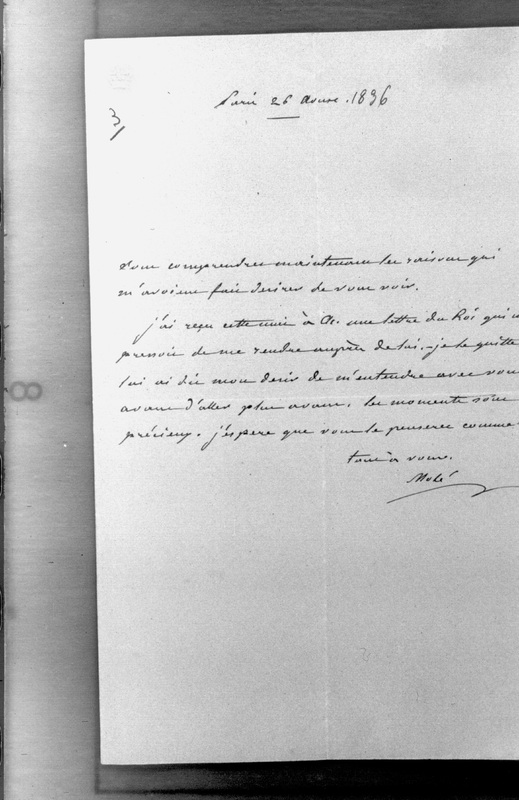 3
Paris 26 aouse. 1836
Vous comprendrez maintenant les raisons qui
m'avoient fait desirer de vous voir.
j'ai reçu cette nuit à une lettre du Roi qui
pressoit de me rendre auprès de lui. je le quitte
lui ai dit mon desir de m'entendre avec vous
avant d'aller plus avant. les moments sont
précieux. j'espere que vous le penserez comme
tout à vous.
Molé